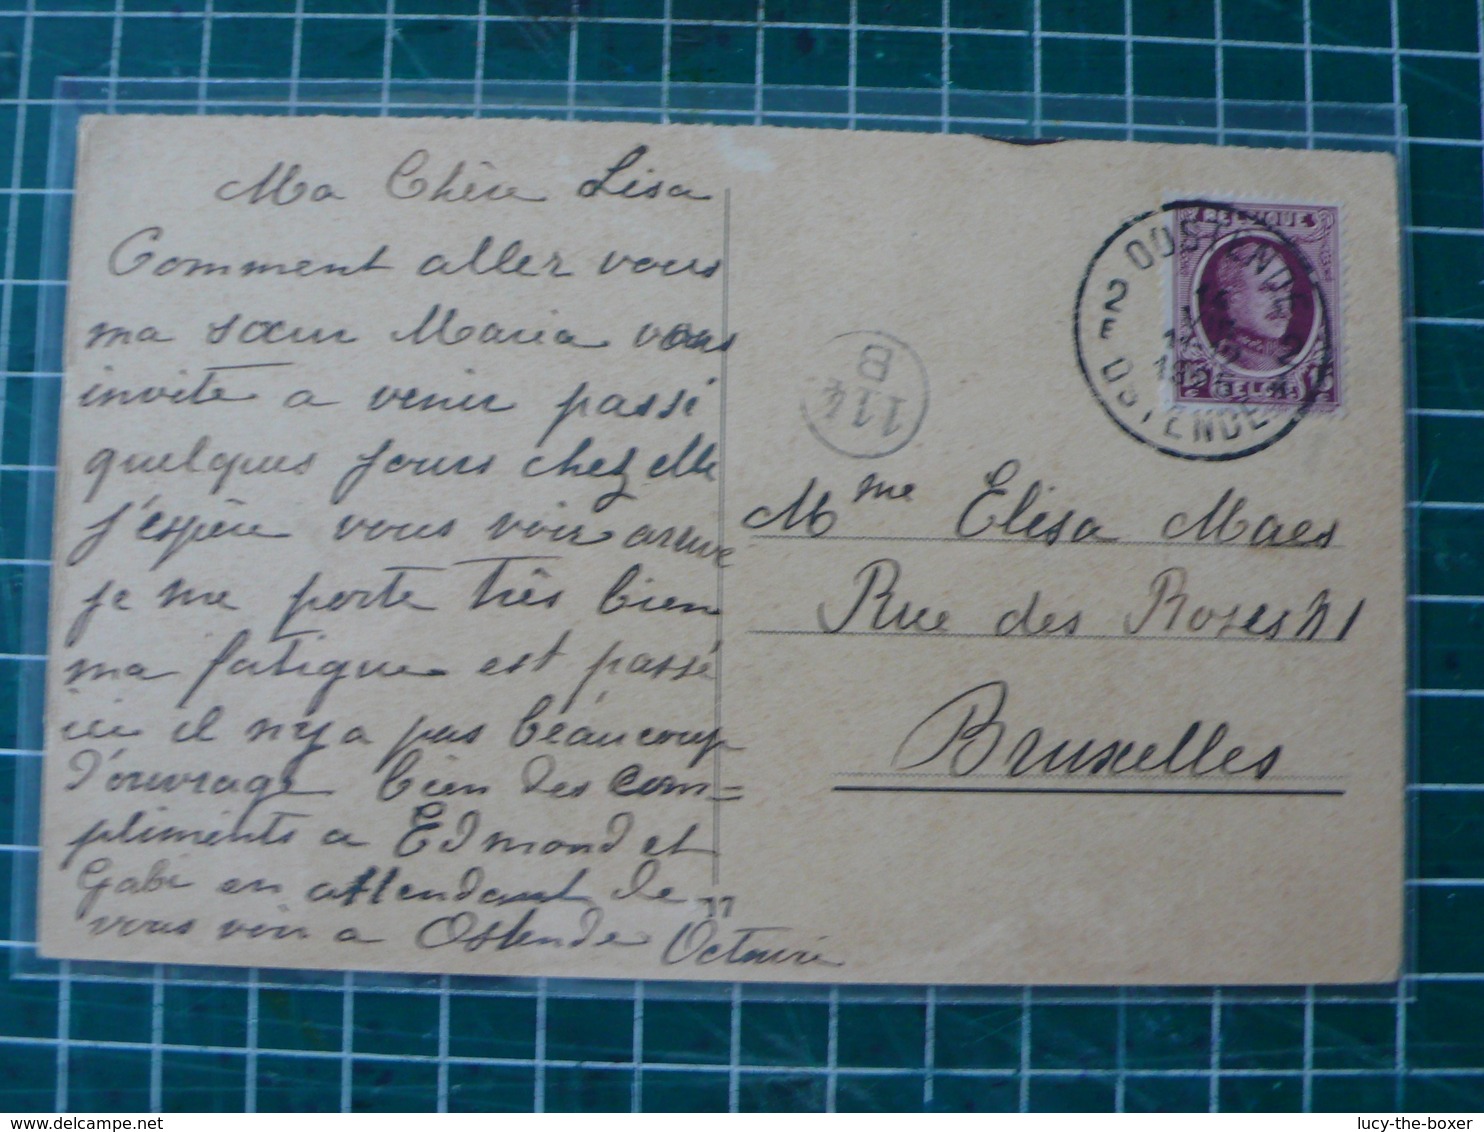 Ma Chère Lisa
Comment aller vous
ma sœur Maria vous
invite a venir passé
quelques jours chez elle
j'espère vous voir arrivé
je me porte très bien
ma fatigue est passé
ici il n'y a pas beaucoup
d'ouvrage bien des com=
pliments a Edmond et
Gabi en attendant de
vous voir a Ostende Octavie
BELGIQUE
BELGIE
OOSTENDE 2
1925
2E OSTENDE
B
114
Mme Elisa Maes
Rue des Roses
Bruxelles
lucy-the-boxer